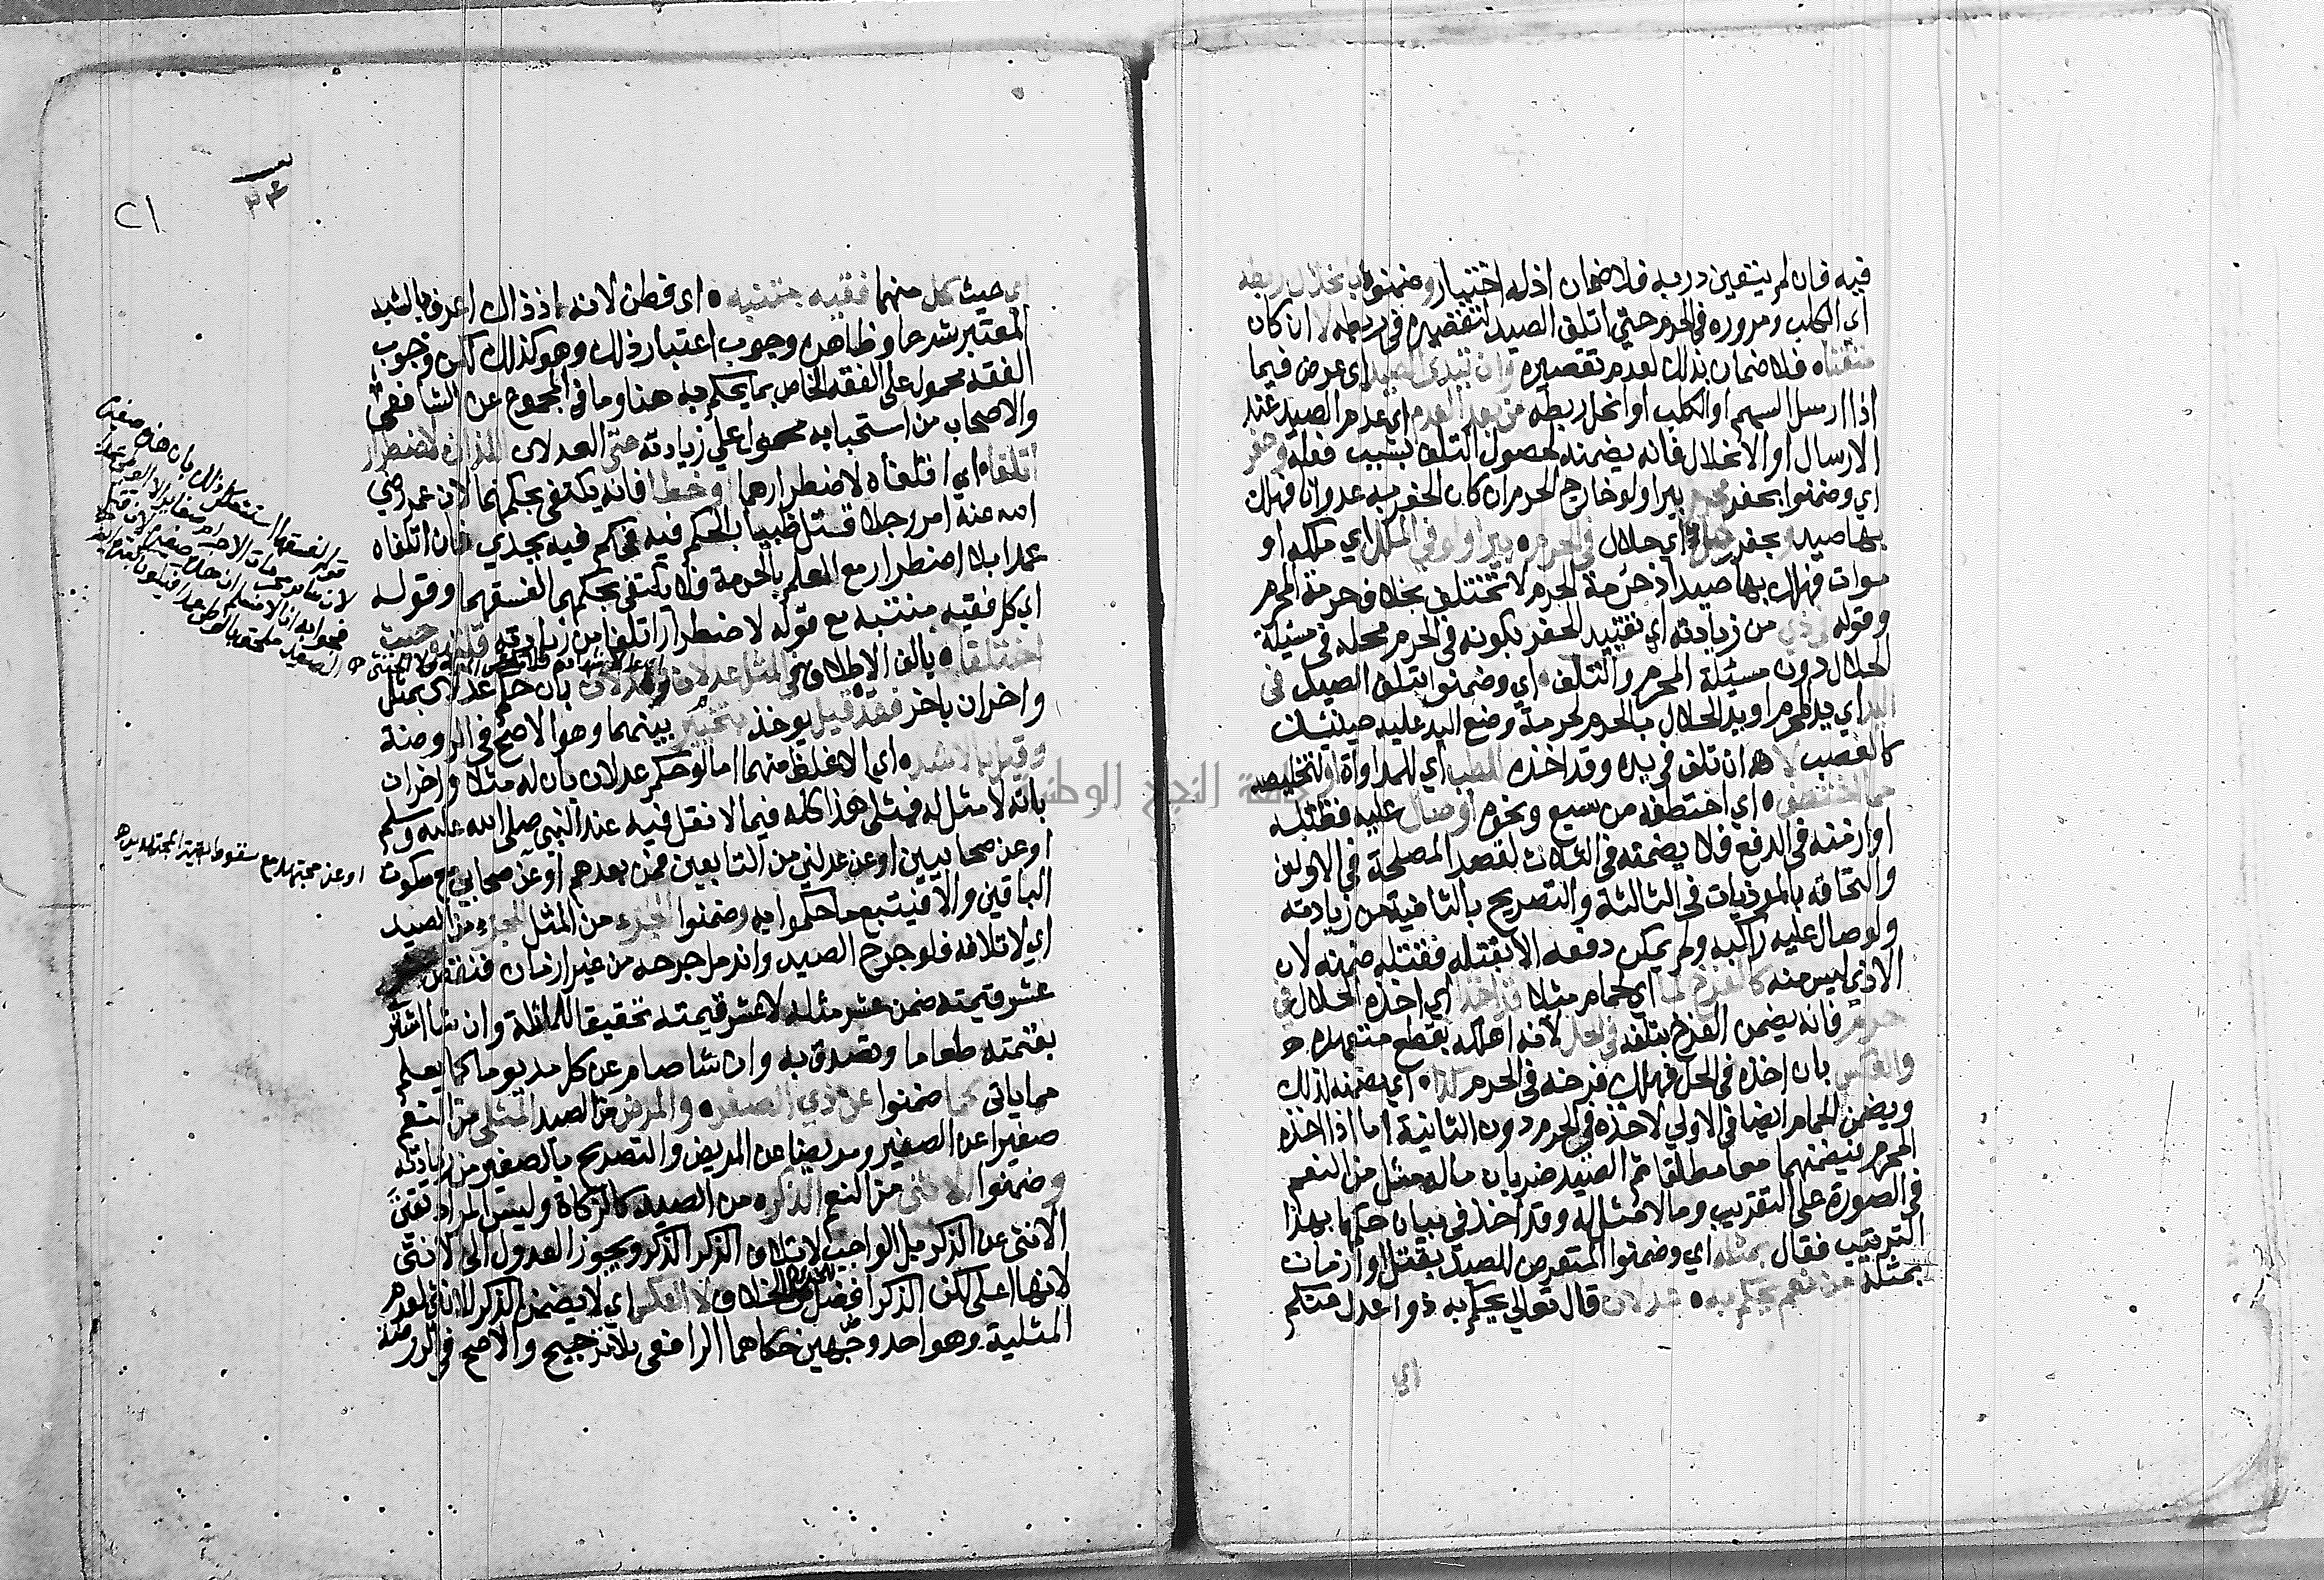 فيه فان لم يتعين دربه فلا ضمان اذ له اختيار وضمنوه بانحلال ربطه
اي الكلب ومروره في الحرم حتي اتلف الصيد لتقصيره في ربطه لا ان كان
متقنا فلا ضمان بذلك لعدم تقصيره وان تبدي الصيد اي عرض فيما
اذا ارسل السهم او الكلب او انحل ربطه من بعد العدم اي عدم الصيد عند
الارسال او الانحلال فانه يضمنه لحصول التلف بسبب فعله وحفر
اي وضمنوا بحفر محرم بيرا ولو خارج الحرم ان كان الحفر به عدوانا فهلك
بها صيد وبحفر حل اي حلال في الحرم بيرا ولو في الملك اي ملكه او
موات فهلك بها صيد اذ حرمة الحرم لا تختلف بخلاف حرمة المحرم
وقوله في ذي من زيادته اي تقييد الحفر بكونه في الحرم محله في مسئلة
الحلال دون مسئلة المحرم والتلف اي وضمنوا بتلف الصيد في
اليد اي يد المحرم او يد الحلال بالحرم لحرمة وضع اليد عليه حينئذ
كالغصب لا ان تلف في يده وقد اخذه للطب اي للمداواة او لتخليصه
مما اختطفه اي اختطفه من سبع ونحوه او صال عليه فقتله
او ازمنه في الدفع فلا يضمنه في الثلاث لقصد المصلحة في الاولين
والتحاقه بالموذيات في الثالثة والتصريح بالثانية من زيادته
ولو صال عليه راكبه ولم يمكن دفعه الا بقتله فقتله ضمنه لان
الاذي ليس منه كالفرخ لما اي لحمام مثلا قد اخذا اي اخذه الحلال في
حرم فانه يضمن الفرخ بتلفه في الحل لانه اهلكه بقطع متعهده
والعكس بان اخذه في الحل فهلك فرخه في الحرم كذا اي يضمنه لذلك
ويضمن الحمام ايضا في الاولي لاخذه في الحرم دون الثانية اما اذا اخذه
المحرم فيضمنهما معا مطلقا ثم الصيد ضربان ماله مثل من النعم
في الصورة علي التقريب وما لا مثل له وقد اخذ في بيان حكمها بهذا
الترتيب فقال بمثله اي وضمنوا المتعرض للصيد بقتل او ازمان
بمثله من نعم يحكم به عدلان قال تعالي يحكم به ذوا عدل منكم
اي
٢١
اي حيث كل منهما فقيه متنبه اي فطن لانه اذ ذاك اعرف بالشبه
المعتبر شرعا وظاهره وجوب اعتبار ذلك وهو كذلك لكن وجوب
الفقه محمول على الفقه الخاص بما يحكم به هنا وما في المجموع عن الشافعي
والاصحاب من استحبابه محمول علي زيادته حتى العدلان اللذان لاضطرار
اتلفا اي اتلفاه لاضطرارهما او خطا فانه يكتفى بحكمهما لان عمر رضي
الله عنه امر رجلا قتل ظبيا بالحكم فيه فحكم فيه بجدي فان اتلفاه
عمدا بلا اضطرار مع العلم بالحرمة فلا يكتفى بحكمهما لفسقهما وقوله
اي كل فقيه متنبه مع قوله لاضطرار اتلفا من زيادته فلو حيث
اختلفا بالف الاطلاق في المثل عدلان وعدلان بان حكم عدلان بمثل
واخران باخر فقد قيل يوخذ بتخيير بينهما وهو الاصح في الروضة
وقيل بالاشد اي الاغلظ منهما اما لو حكم عدلان بان له مثلا واخران
بانه لا مثل له فمثلي هذا كله فيما لا نقل فيه عن النبي صلي الله عليه وسلم
او عن صحابيين او عن عدلين من التابعين فمن بعدهم او عن صحابي مع سكوت
الباقين والا فيتبع ما حكموا به وضمنوا الجزء من المثل بجزء من الصيد
اي لاتلافه فلو جرح الصيد واندمل جرحه من غير ازمان فنقص
عشر قيمته ضمن عشر مثله لا عشر قيمته تحقيقا للمماثلة وان شا اشتر
بقيمته طعاما وتصدق به وان شا صام عن كل مد يوما كما يعلم
مما ياتي كما ضمنوا عن ذي الصغر والمرض من الصيد المثلي من النعم
صغيرا عن الصغير ومريضا عن المريض والتصريح بالصغير من زيادته
وضمنوا الانثى من النعم الذكر من الصيد كالزكاة وليس المراد تعين
الانثى عن الذكر بل الواجب لاتلاف الذكر الذكر ويجوز العدول الى الانثى
لانها اعلى لكن الذكر افضل للخروج من الخلاف لا العكس اي لا يضمن الذكر للانثى لعدم
المثلية وهو احد وجهين حكاهما الرافعي بلا ترجيح والاصح في الروضة
او عن مجتهد مع سكوت